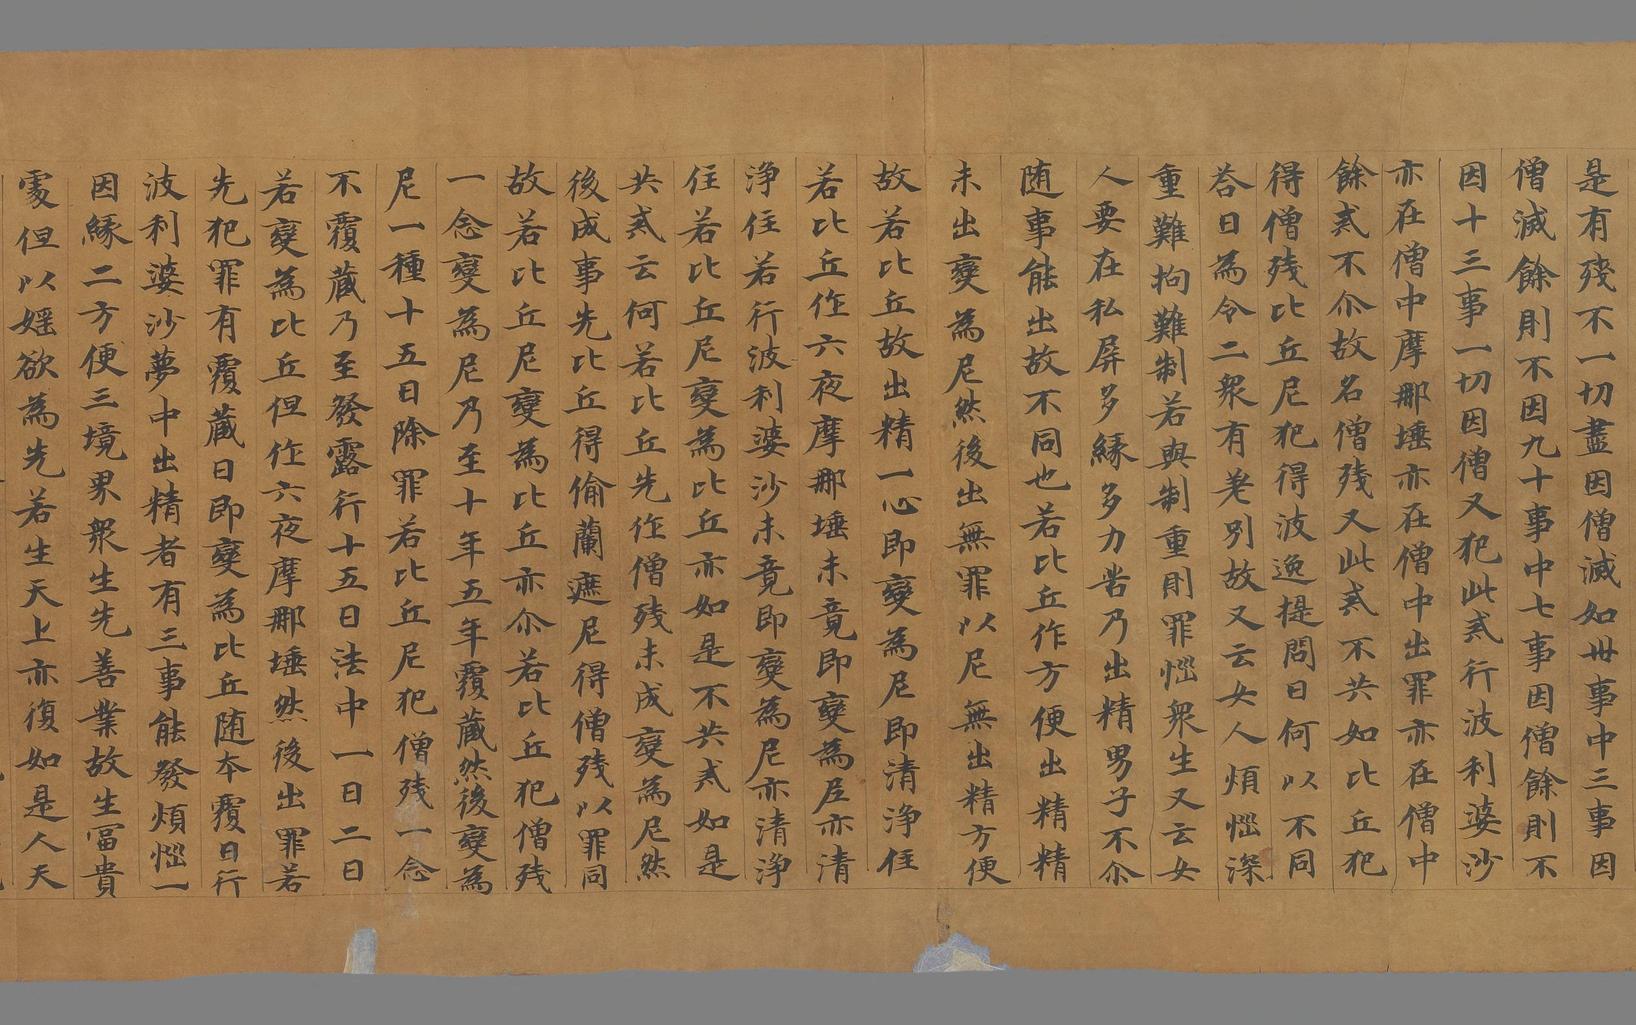 是有残不一切盡因僧滅如丗事中三事因
僧滅餘則不因九十事中七事因僧餘則不
因十三事一切因僧又犯此貳行波利婆沙
亦在僧中摩那埵亦在僧中出罪亦在僧中
餘貳不尒故名僧残又此貳不共如比丘犯
得僧残比丘尼犯得波逸提問曰何以不同
荅曰為令二衆有差别故又云女人煩惱深
重難拘難制若與制重則罪惱衆生又云女
人要在私屏多緣多力苦乃出精男子不尒
随事能出故不同也若比丘作方便出精精
未出變為尼然後出無罪以尼無出精方便
故若比丘故出精一心即變為尼即清浄住
若比丘作六夜摩那埵未竟即變為尼亦清
浄住若行波利婆沙未竟即變為尼亦清浄
住若比丘尼變為比丘亦如是不共貳如是
共貳云何若比丘先作僧残未成變為尼然
後成事先比丘得偷蘭遮尼得僧残以罪同
故若比丘尼變為比丘亦尒若比丘犯僧残
一念變為尼乃至十年五年覆蔵然後變為
尼一種十五日除罪若比丘尼犯僧残一念
不覆蔵乃至發露行十五日法中一日二日
若變為比丘但作六夜摩那埵然後出罪若
先犯罪有覆蔵日即變為比丘随本覆日行
波利婆沙夢中出精者有三事能發煩惱一
因緣二方便三境界衆生先善業故生冨貴
處但以婬欲為先若生天上亦復如是人天